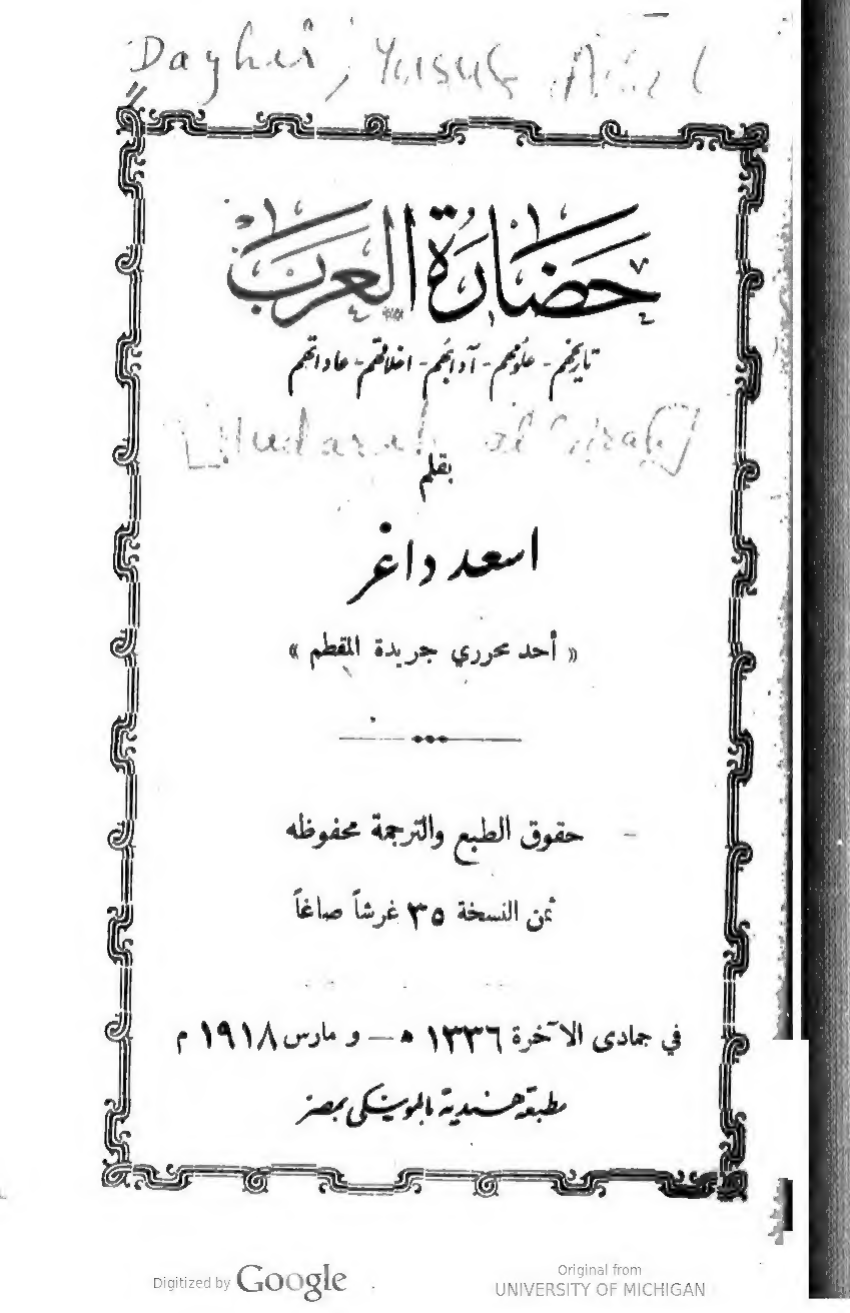 Daghir, Yusuf
حضارة العرب
تاريخهم - علومهم - آدابهم - اخلاقهم - عاداتهم
[Hadarah al-'Arab]
بقلم
اسعد داغر
« أحد محرري جريدة المقطم »
حقوق الطبع والترجمة محفوظه
ثمن النسخة ٣٥ غرشاً صاغاً
في جمادى الآخرة ١٣٣٦ ھ — و مارس ١٩١٨ م
مطبعة هندية بالموسكي بمصر
Digitized by Google
Original from
UNIVERSITY OF MICHIGAN